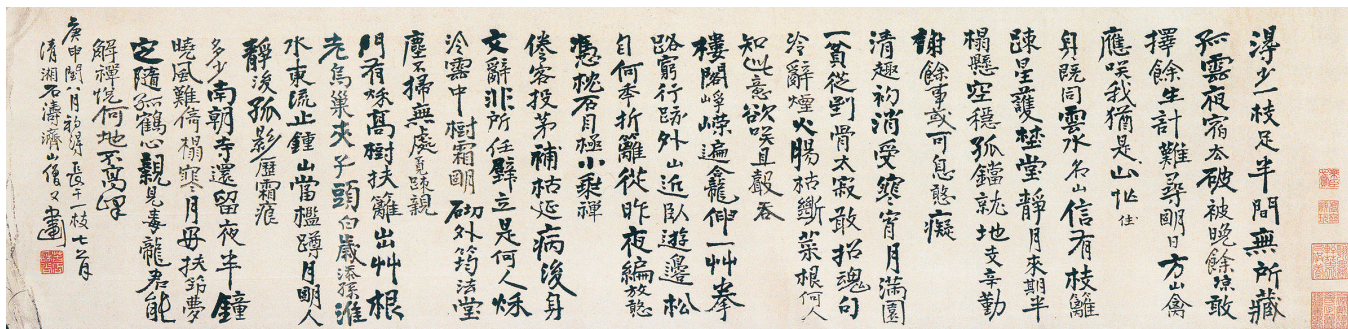 得少一枝足半間無所藏
孤雲夜宿去破被晚餘凉敢
擇餘生計難尋明日方山禽
應咲我猶是山忙住
身既同雲水名山信有枝籬
疎星護埜堂靜月來期半
榻懸空穩孤鐺就地支辛勤
謝餘事或可息憨癡
清趣初消受寒宵月滿園
一貧從到骨太寂敢招魂句
冷辭煙火腸枯斷菜根何人
知此意欲咲且聲吞
樓閣崢嶸遍龕伸一艸拳
路窮行跡外山近臥遊邊松
自何年折籬從昨夜編放憨
憑枕石目極小乘禪
倦客投茅補枯延病後身
文辭非所任壁立是何人秋
冷霑巾樹霜明砌外筠法堂
塵不掃無處覓疎親
門有秋高樹扶籬出艸根
老烏巢夾子頭白歲添孫淮
水東流止鍾山當檻蹲月明人
靜後孤影歷霜痕
多少南朝寺還留夜半鐘
曉風難倚榻寒月毋扶筇夢
定隨孤鶴心親見毒龍君能
解禪悅何地不高峰
庚申閏八月初得長干一枝七首
清湘石濤濟山僧